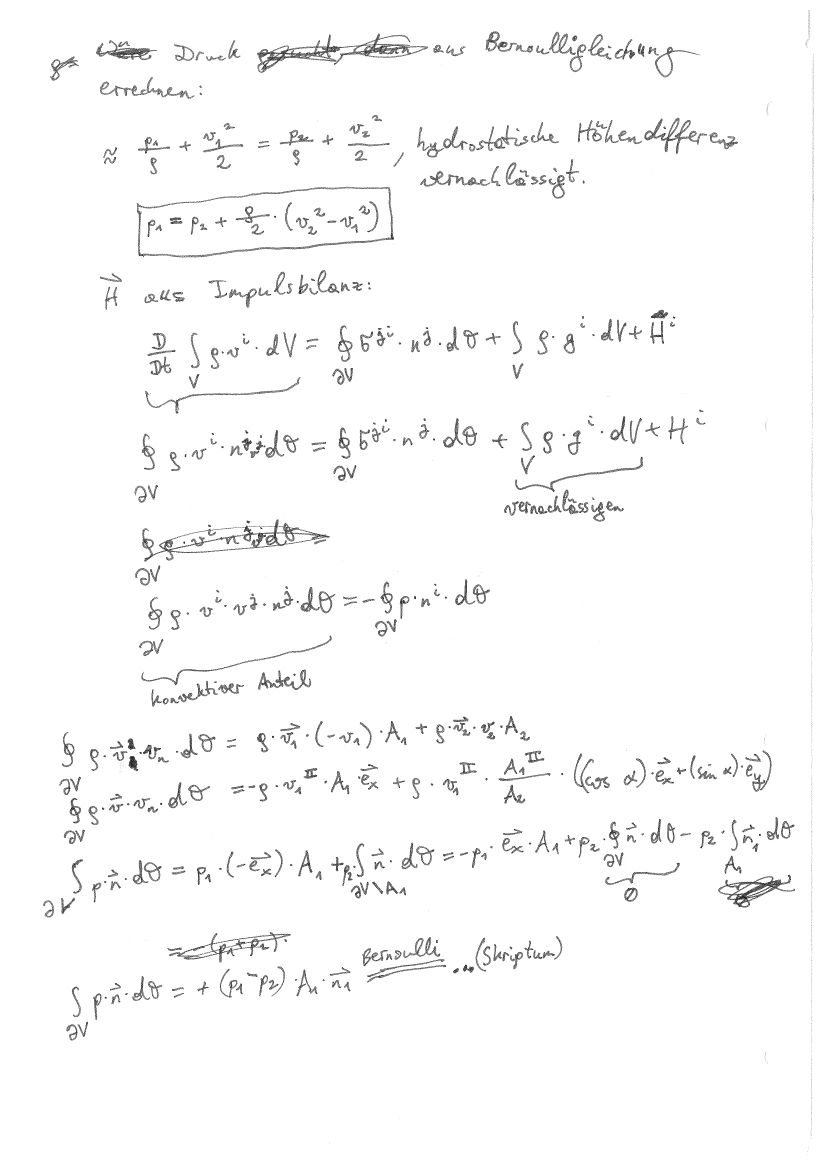 Druck aus Bernoulligleichung
errechnen:
≈ p₁/ρ + v₁²/2 = p₂/ρ + v₂²/2 , hydrostatische Höhendifferenz
vernachlässigt.
p₁ = p₂ + ρ/2 · (v₂² − v₁²)
H⃗ aus Impulsbilanz:
D/Dt ∫_V ρ·vⁱ·dV = ∮_∂V σʲⁱ·nʲ·dO + ∫_V ρ·gⁱ·dV + Hⁱ
∮_∂V ρ·vⁱ·nʲvʲdO = ∮_∂V σʲⁱ·nʲ·dO + ∫_V ρ·gⁱ·dV + Hⁱ
vernachlässigen
∮_∂V ρ·vⁱ·nʲvʲdO =
∮_∂V ρ·vⁱ·vʲ·nʲ·dO = −∮_∂V p·nⁱ·dO
konvektiver Anteil
∮_∂V ρ·v⃗·vₙ·dO = ρ·v⃗₁·(−v₁)·A₁ + ρ·v⃗₂·v₂·A₂
∮_∂V ρ·v⃗·vₙ·dO = −ρ·v₁ᴵᴵ·A₁·e⃗ₓ + ρ·v₁ᴵᴵ·A₁ᴵᴵ/A₂·((cos α)·e⃗ₓ+(sin α)·e⃗ᵧ)
∫_∂V p·n⃗·dO = p₁·(−e⃗ₓ)·A₁ + p₂·∫_∂V\A₁ n⃗·dO = −p₁·e⃗ₓ·A₁ + p₂·∮_∂V n⃗·dO − p₂·∫_A₁ n⃗₁·dO
0
= −(p₁+p₂)·
∫_∂V p·n⃗·dO = +(p₁−p₂)·A₁·n⃗₁ Bernoulli ...(Skriptum)